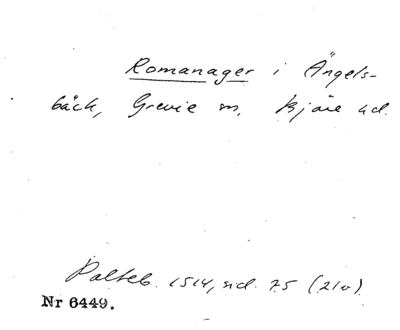 Romanager i Ängels-
bäck, Grevie sn, Bjäre hd.
Palteb. 1514, sid. 75 (21v)
Nr 6449.